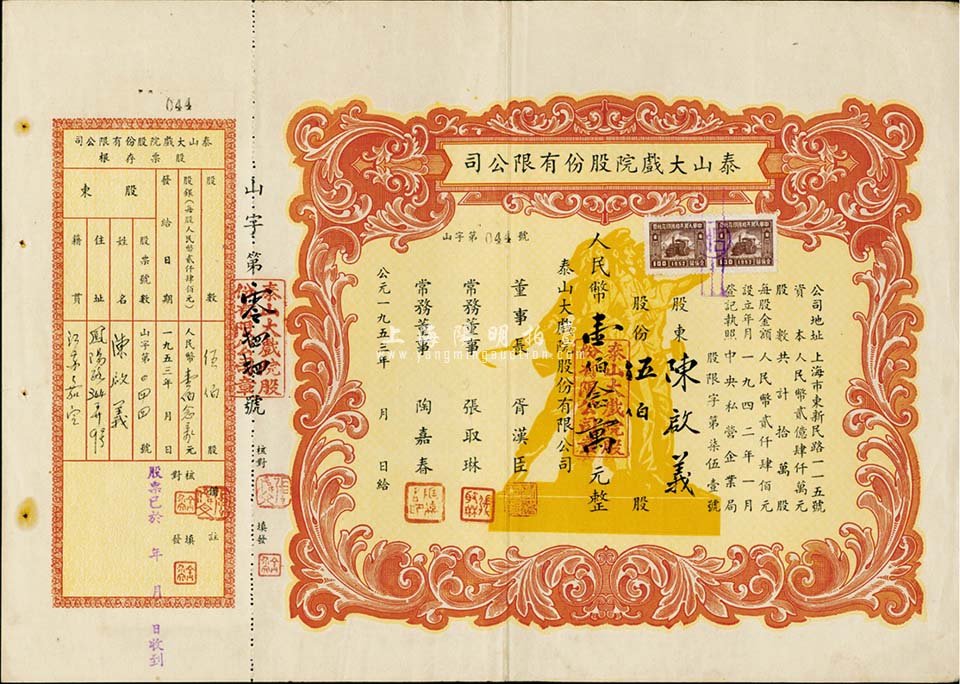 泰山大戲院股份有限公司
公司地址 上海市東新民路一一五號
資本 人民幣貳億肆仟萬元
股數共計拾萬股
每股金額 人民幣貳仟肆佰元
設立年月 一九四二年一月
登記執照 中央私營企業局
股限字第柒伍壹號
股東 陳啟義
股份 伍佰 股
人民幣 壹佰念萬 元整
泰山大戲院股份有限公司
董事長 胥漢臣
常務董事 張取琳
常務董事 陶嘉春
公元一九五三年 月 日給
山字第044號
泰山大戲院股份有限公司
山字第零肆肆號
泰山大戲院股份有限公司
核對
填發
044
泰山大戲院股份有限公司
股票存根
股數 伍佰 股
股銀(每股人民幣貳仟肆佰元) 人民幣壹佰念萬元
發給日期 一九五三年 月 日
股東
股票號數 山字第0四四號
姓名 陳啟義
住址 鳳陽路
籍貫 江蘇嘉定
備註
核對
填發
股票已於 年 月 日收到
上海陽明拍賣
www.yangmingauction.com